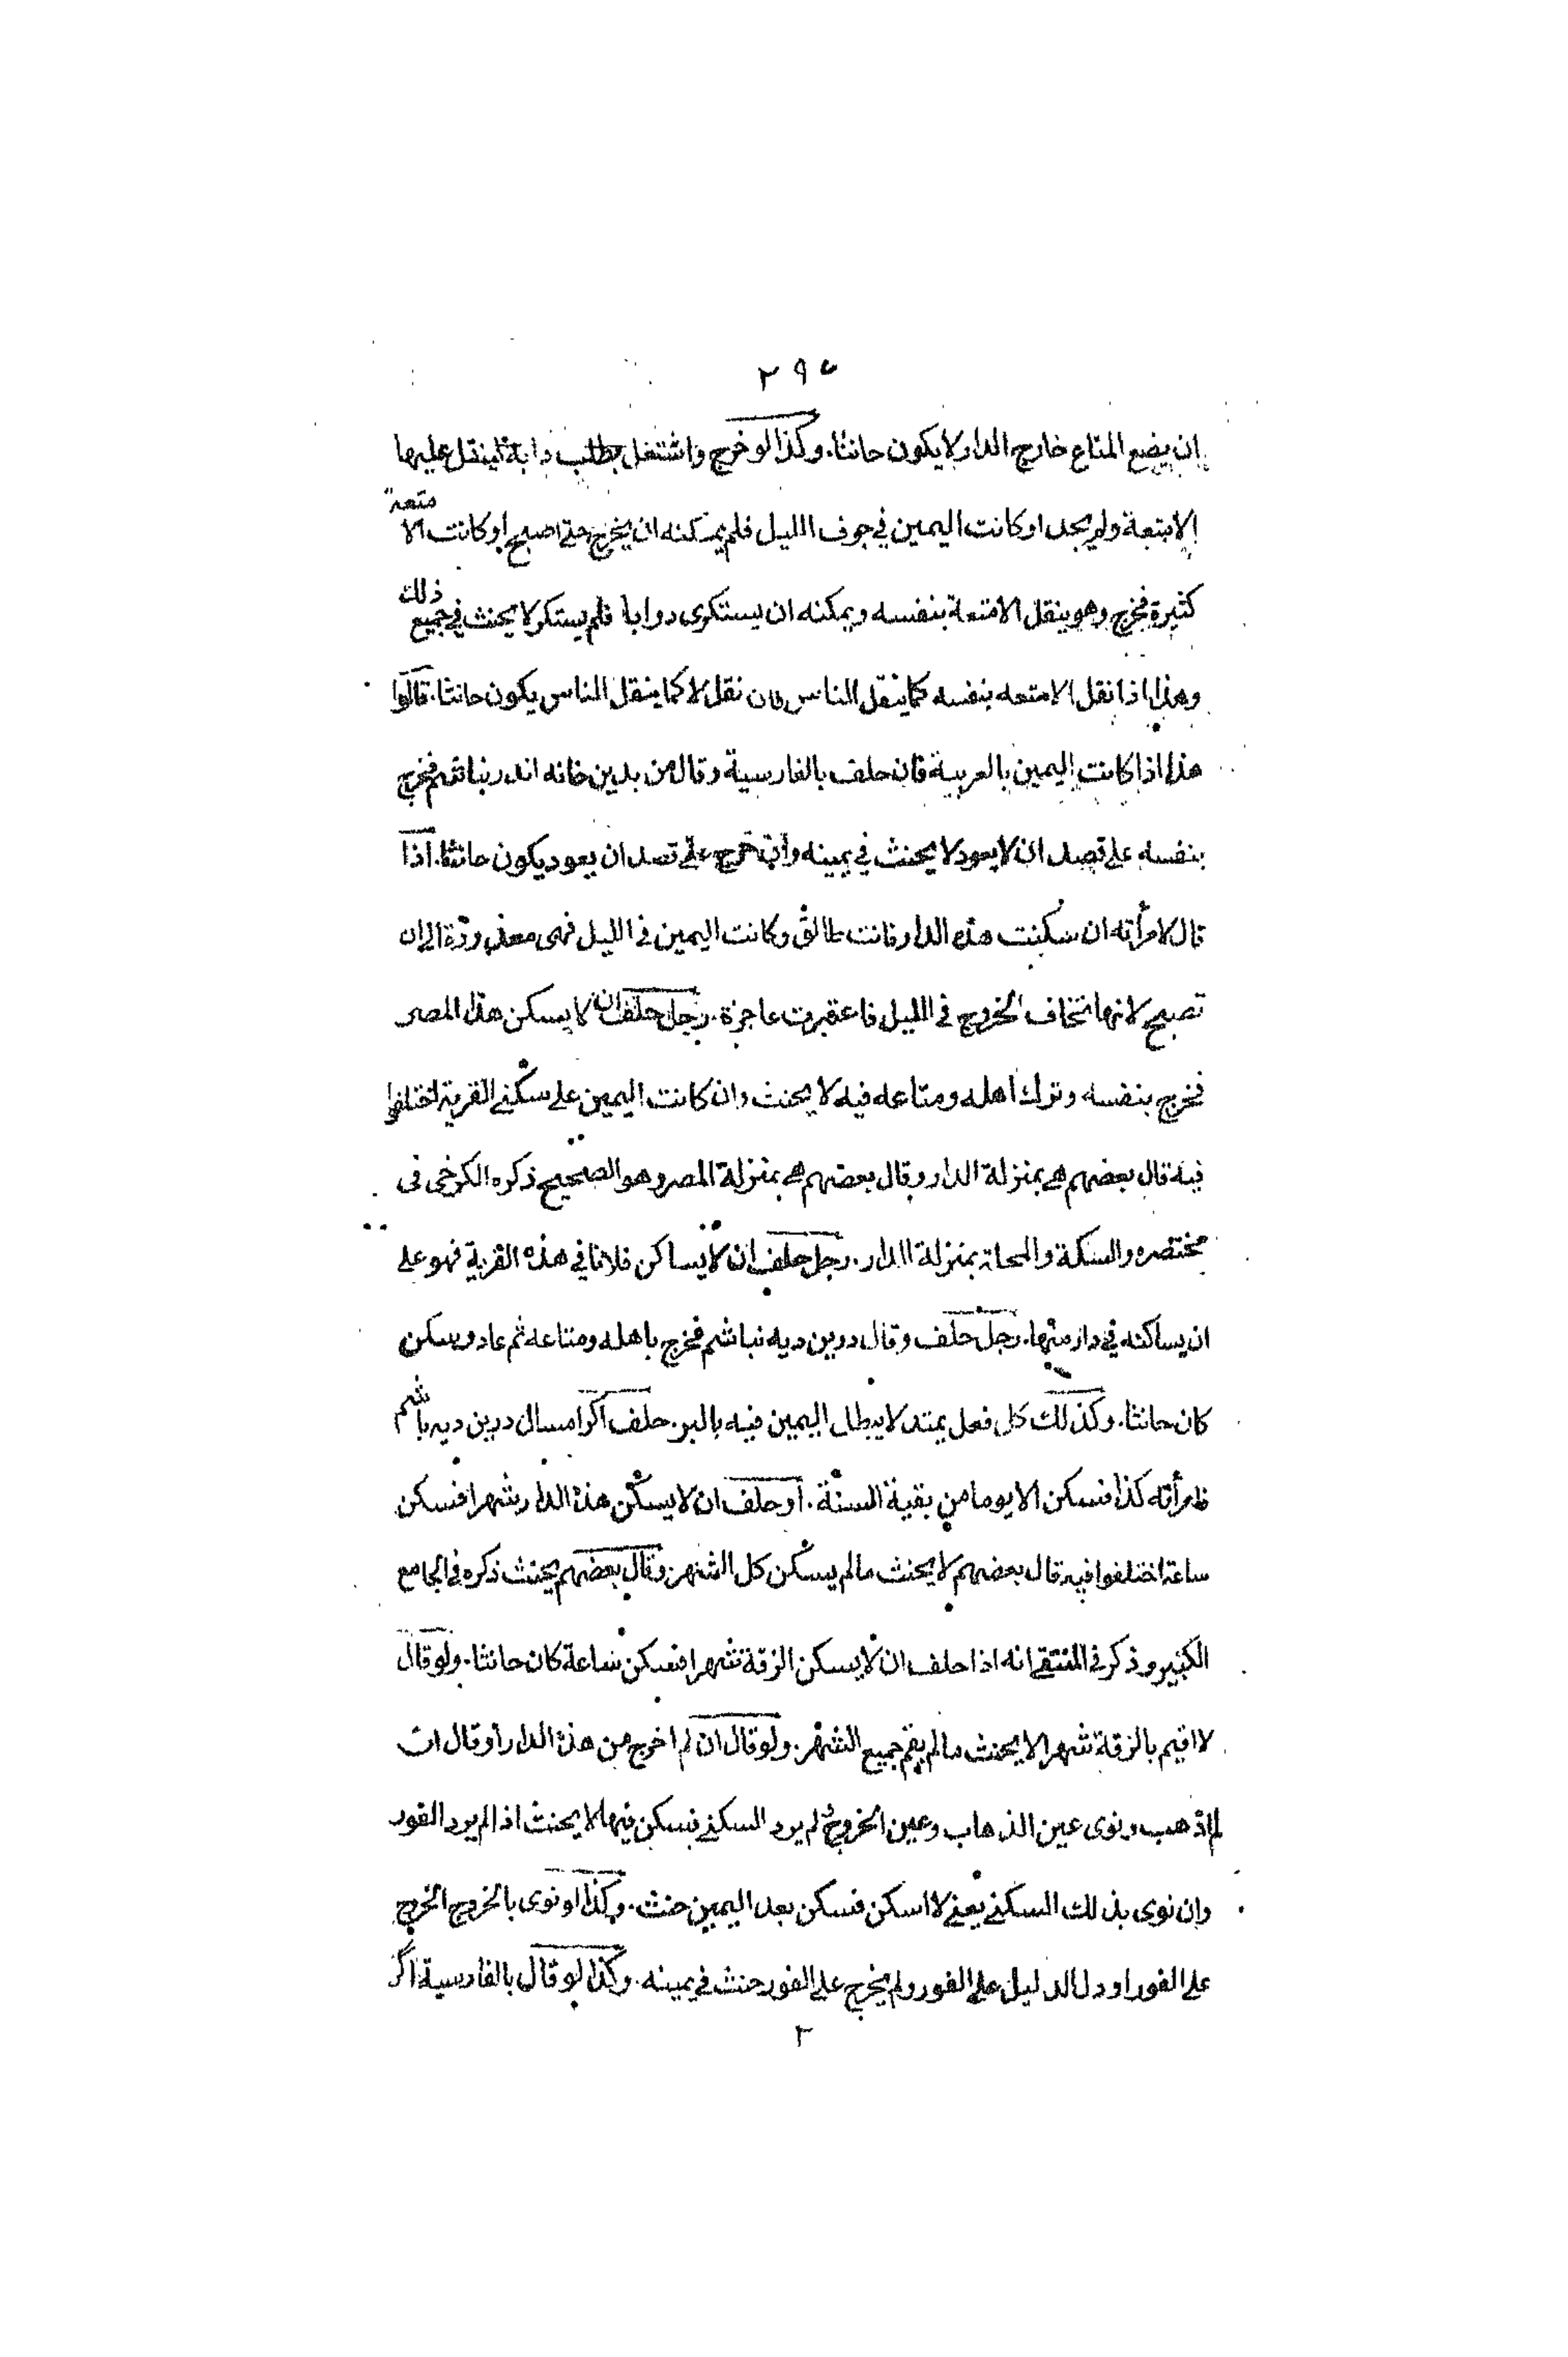 ٢٩٥
ان يضع المتاع خارج الدار لا يكون حانثا. وكذا لو خرج واشتغل بطلب دابة لينقل عليها
الامتعة ولم يجد او كانت اليمين في جوف الليل فلم يمكنه ان يخرج حتى اصبح او كانت الامتعة
كثيرة فخرج وهو ينقل الامتعة بنفسه ويمكنه ان يستكرى دوابا فلم يستكر لا يحنث في جميع ذلك
وهذا اذا نقل الامتعه بنفسه كما ينقل الناس فان نقل لا كما ينقل الناس يكون حانثا. قالوا
هذا اذا كانت اليمين بالعربية فان حلف بالفارسية وقال من بدين خانه اندر نباشم فخرج
بنفسه على قصد ان لا يعود لا يحنث في يمينه وان خرج على قصد ان يعود يكون حانثا. اذا
قال لامرأته ان سكنت هذه الدار فانت طالق وكانت اليمين في الليل فهى معذورة الى ان
تصبح لانها تخاف الخروج في الليل فاعتبرت عاجزة. رجل حلف ان لا يسكن هذا المصر
فخرج بنفسه وترك اهله ومتاعه فيه لا يحنث وان كانت اليمين على سكنى القرية اختلفوا
فيه قال بعضهم هي بمنزلة الدار وقال بعضهم هي بمنزلة المصر وهو الصحيح ذكره الكرخى فى
مختصره والسكة والمحلة بمنزلة الدار. رجل حلف ان لا يساكن فلانا في هذه القرية فهو على
ان يساكنه في دار منها. رجل حلف وقال درين ديه نباشم فخرج باهله ومتاعه ثم عاد وسكن
كان حانثا. وكذلك كل فعل يمتد لا يبطل اليمين فيه بالبر. حلف اكر امسال درين ديه باشم
فامرأته كذا فسكن الا يوما من بقية السنة. او حلف ان لا يسكن هذه الدار شهرا فسكن
ساعة اختلفوا فيه قال بعضهم لا يحنث ما لم يسكن كل الشهر. وقال بعضهم يحنث ذكره فى الجامع
الكبير وذكر فى المنتقى انه اذا حلف ان لا يسكن الرقة شهرا فسكن ساعة كان حانثا. ولو قال
لا اقيم بالرقة شهرا لا يحنث ما لم يقم جميع الشهر. ولو قال ان لم اخرج من هذه الدار او قال ان
لم اذهب ونوى عين الذهاب وعين الخروج لم يرد السكنى فسكن فيها لا يحنث اذا لم يرد الفور
وان نوى بذلك السكنى يعنى لا اسكن فسكن بعد اليمين حنث. وكذا لو نوى بالخروج الخروج
على الفور او دل الدليل على الفور ولم يخرج على الفور حنث في يمينه. وكذا لو قال بالفارسية اگر
٢